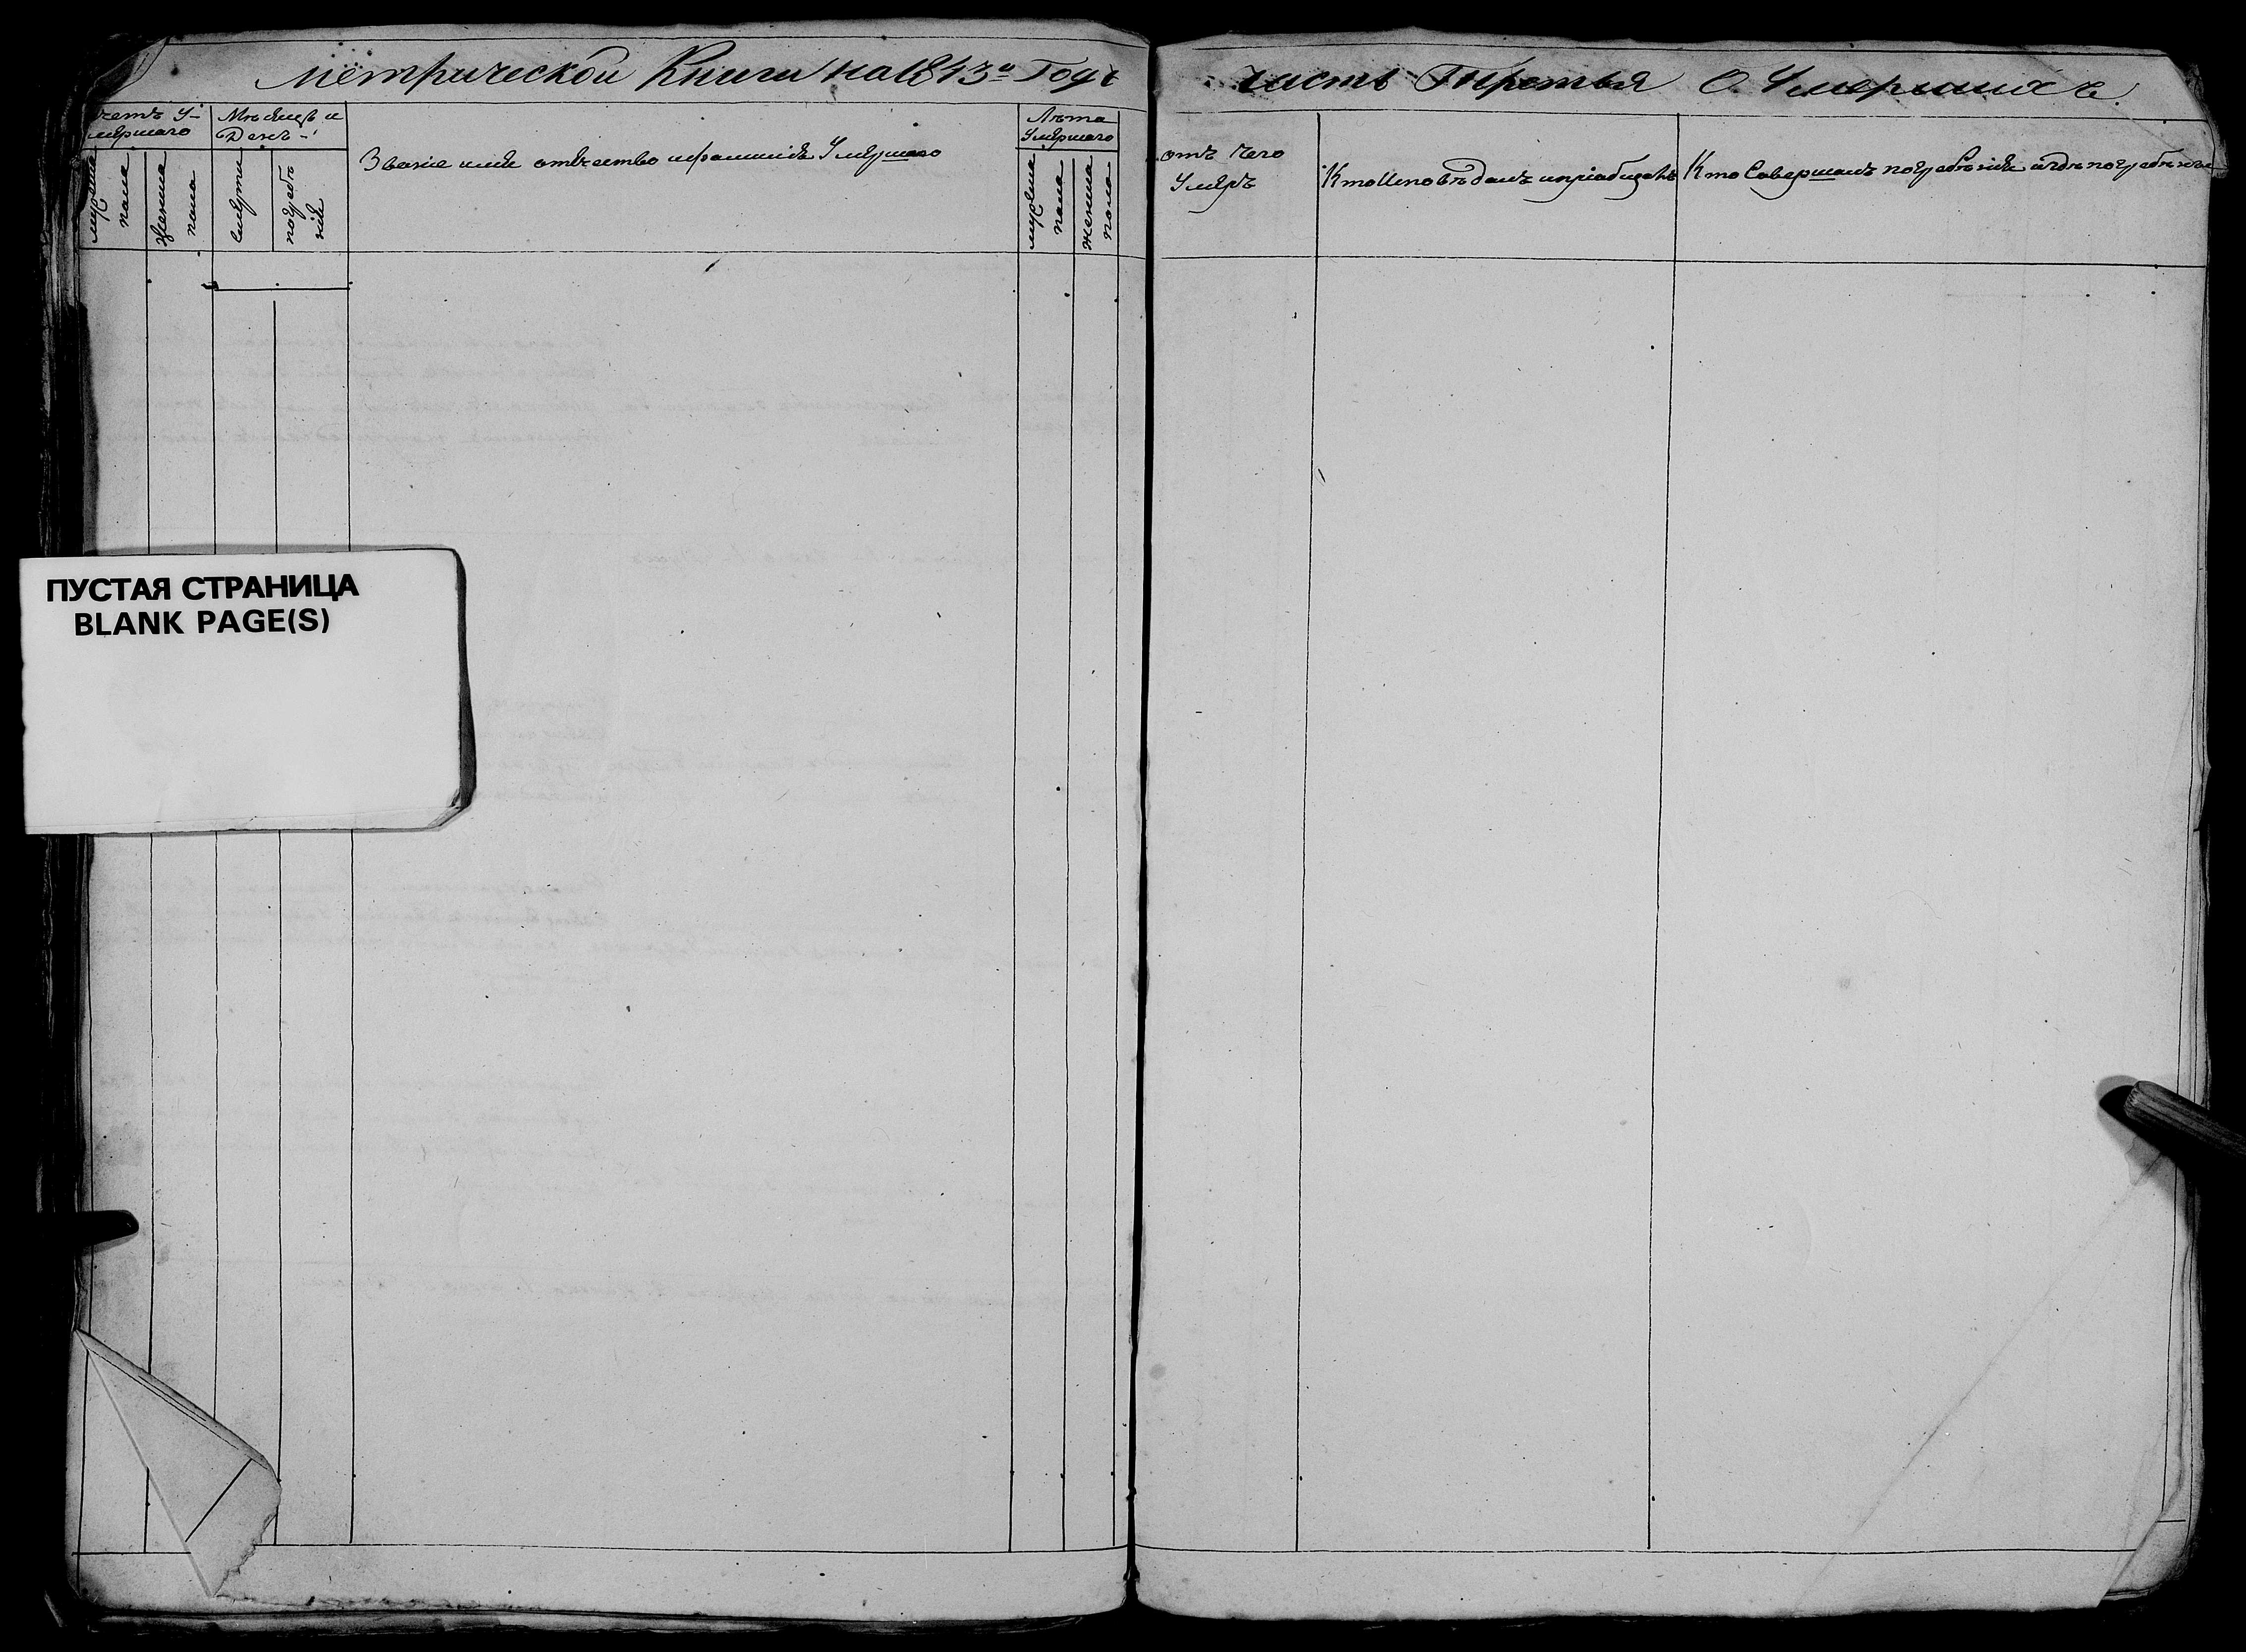 Метрической Книги на 1843й Годъ
Часть Третья О Умершихъ.
счетъ У-
мершаго
мужеска
пола
женска
пола
Мѣсяцъ и
День
смерти
погребѣ
нія
Званіе имя отвчество ифамилія Умершаго
Лѣта
Умершаго
мужеска
пола
женска
пола
отъ чего
Умеръ
Кто Исповѣдалъ ипріобщалъ
Кто Совершалъ погребѣнія игдѣ погребѣны
ПУСТАЯ СТРАНИЦА
BLANK PAGE(S)